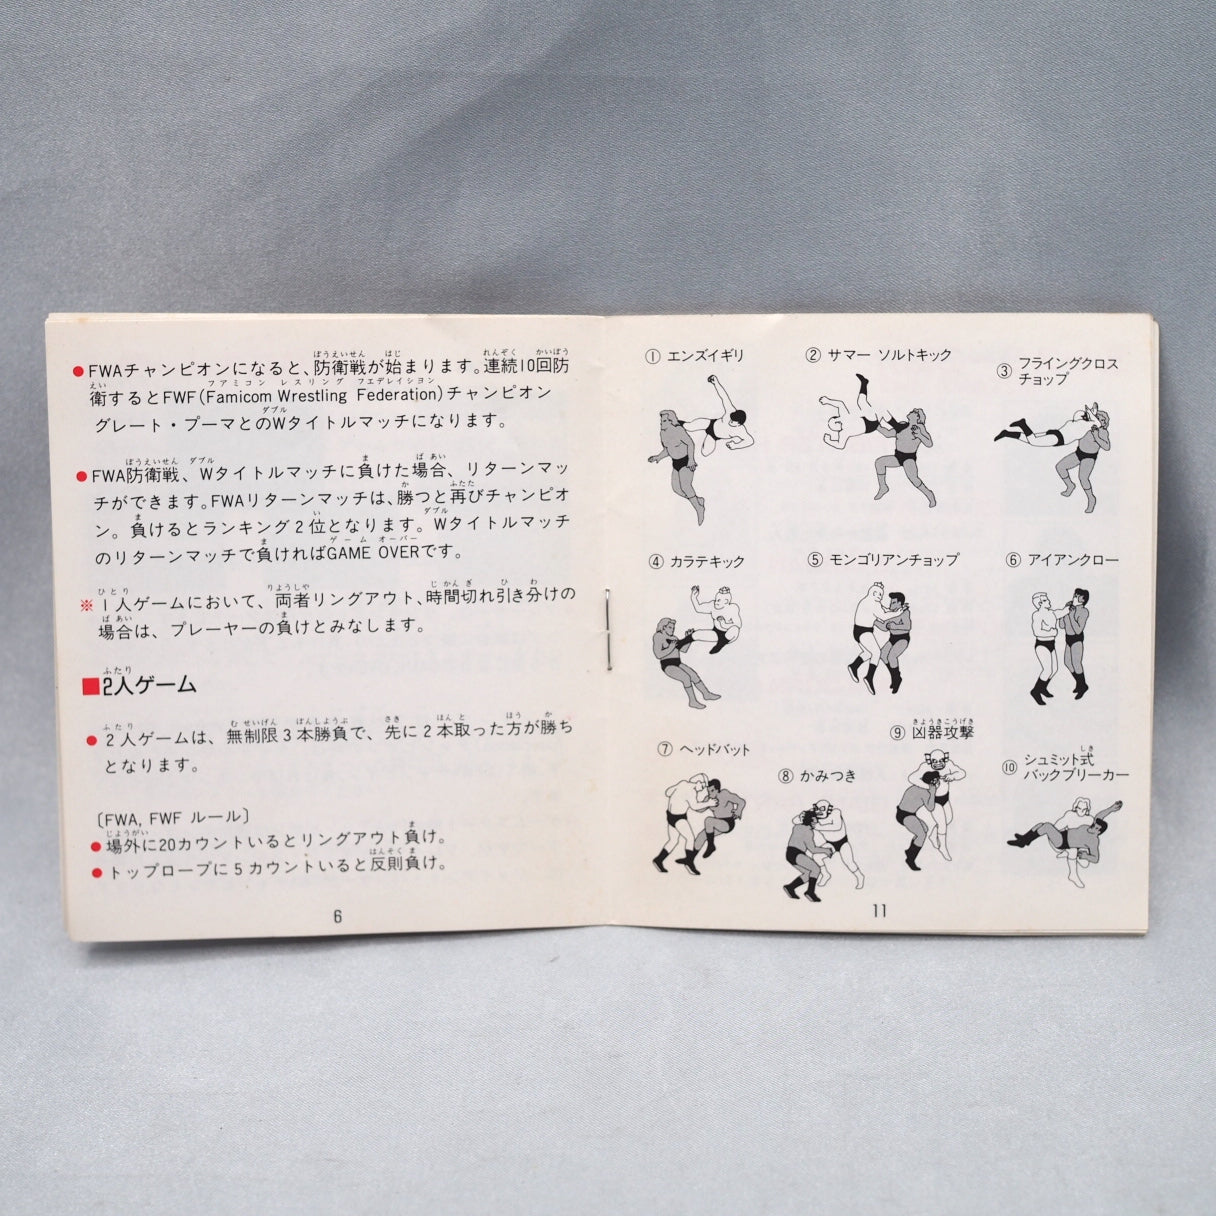 ●FWAチャンピオンになると、防衛戦が始まります。連続10回防
衛するとFWF(Famicom Wrestling Federation)チャンピオン
グレート・プーマとのWタイトルマッチになります。
●FWA防衛戦、Wタイトルマッチに負けた場合、リターンマッ
チができます。FWAリターンマッチは、勝つと再びチャンピオ
ン。負けるとランキング2位となります。Wタイトルマッチ
のリターンマッチで負ければGAME OVERです。
※1人ゲームにおいて、両者リングアウト、時間切れ引き分けの
場合は、プレーヤーの負けとみなします。
■2人ゲーム
●2人ゲームは、無制限3本勝負で、先に2本取った方が勝ち
となります。
〔FWA, FWF ルール〕
●場外に20カウントいるとリングアウト負け。
●トップロープに5カウントいると反則負け。
6
① エンズイギリ
② サマー ソルトキック
③ フライングクロス
チョップ
④ カラテキック
⑤ モンゴリアンチョップ
⑥ アイアンクロー
⑦ ヘッドバット
⑧ かみつき
⑨ 凶器攻撃
⑩ シュミット式
バックブリーカー
11